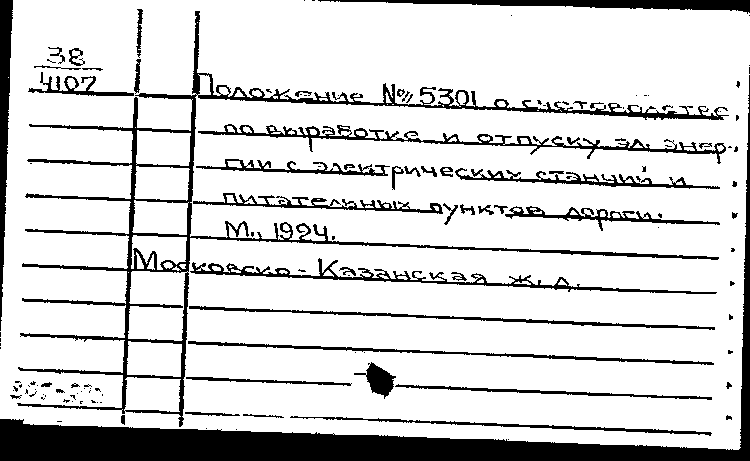 38
4107
Положение № 5301 о счетоводстве
по выработке и отпуску эл. энер-
гии с электрических станций и
питательных пунктов дороги.
М., 1924.
Московско-Казанская ж. д.